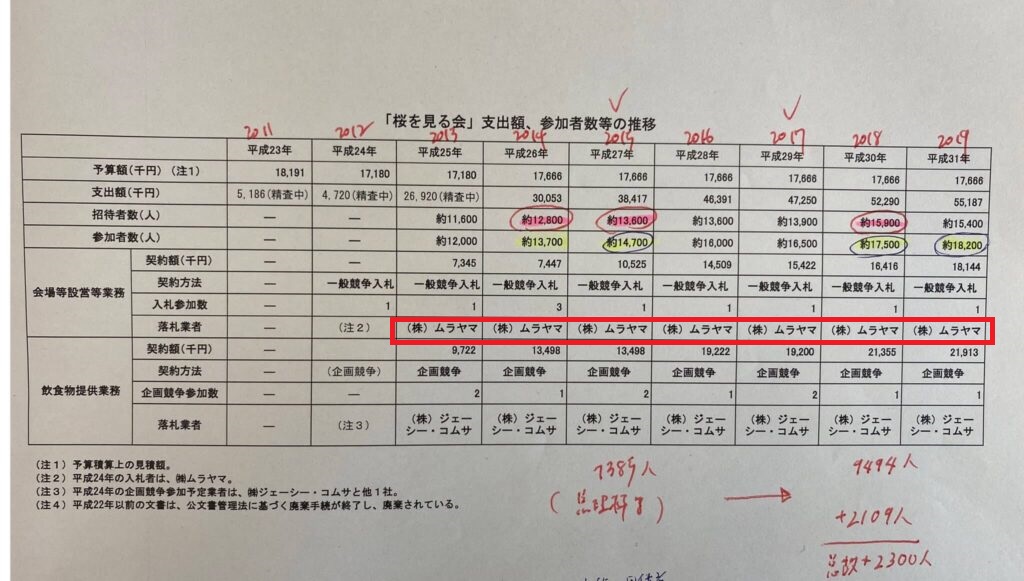 「桜を見る会」支出額、参加者数等の推移
2011 2012 2013 2014 2015 2016 2017 2018 2019
平成23年 平成24年 平成25年 平成26年 平成27年 平成28年 平成29年 平成30年 平成31年
予算額(千円)(注1) 18,191 17,180 17,180 17,666 17,666 17,666 17,666 17,666 17,666
支出額(千円) 5,186(精査中) 4,720(精査中) 26,920(精査中) 30,053 38,417 46,391 47,250 52,290 55,187
招待者数(人) ― ― 約11,600 約12,800 約13,600 約13,600 約13,900 約15,900 約15,400
参加者数(人) ― ― 約12,000 約13,700 約14,700 約16,000 約16,500 約17,500 約18,200
会場等設営等業務
契約額(千円) ― ― 7,345 7,447 10,525 14,509 15,422 16,416 18,144
契約方法 ― 一般競争入札 一般競争入札 一般競争入札 一般競争入札 一般競争入札 一般競争入札 一般競争入札 一般競争入札
入札参加数 ― 1 1 3 1 1 1 1 1
落札業者 ― (注2) (株)ムラヤマ (株)ムラヤマ (株)ムラヤマ (株)ムラヤマ (株)ムラヤマ (株)ムラヤマ (株)ムラヤマ
飲食物提供業務
契約額(千円) ― ― 9,722 13,498 13,498 19,222 19,200 21,355 21,913
契約方法 ― (企画競争) 企画競争 企画競争 企画競争 企画競争 企画競争 企画競争 企画競争
企画競争参加数 ― ― 2 1 2 1 2 1 1
落札業者 ― (注3) (株)ジェー (株)ジェー (株)ジェー (株)ジェー (株)ジェー (株)ジェー (株)ジェー
シー・コムサ シー・コムサ シー・コムサ シー・コムサ シー・コムサ シー・コムサ シー・コムサ
(注1)予算積算上の見積額。
(注2)平成24年の入札者は、㈱ムラヤマ。
(注3)平成24年の企画競争参加予定業者は、㈱ジェーシー・コムサと他1社。
(注4)平成22年以前の文書は、公文書管理法に基づく廃棄手続が終了し、廃棄されている。
7385人 → 9494人
+2109人
総数+2300人